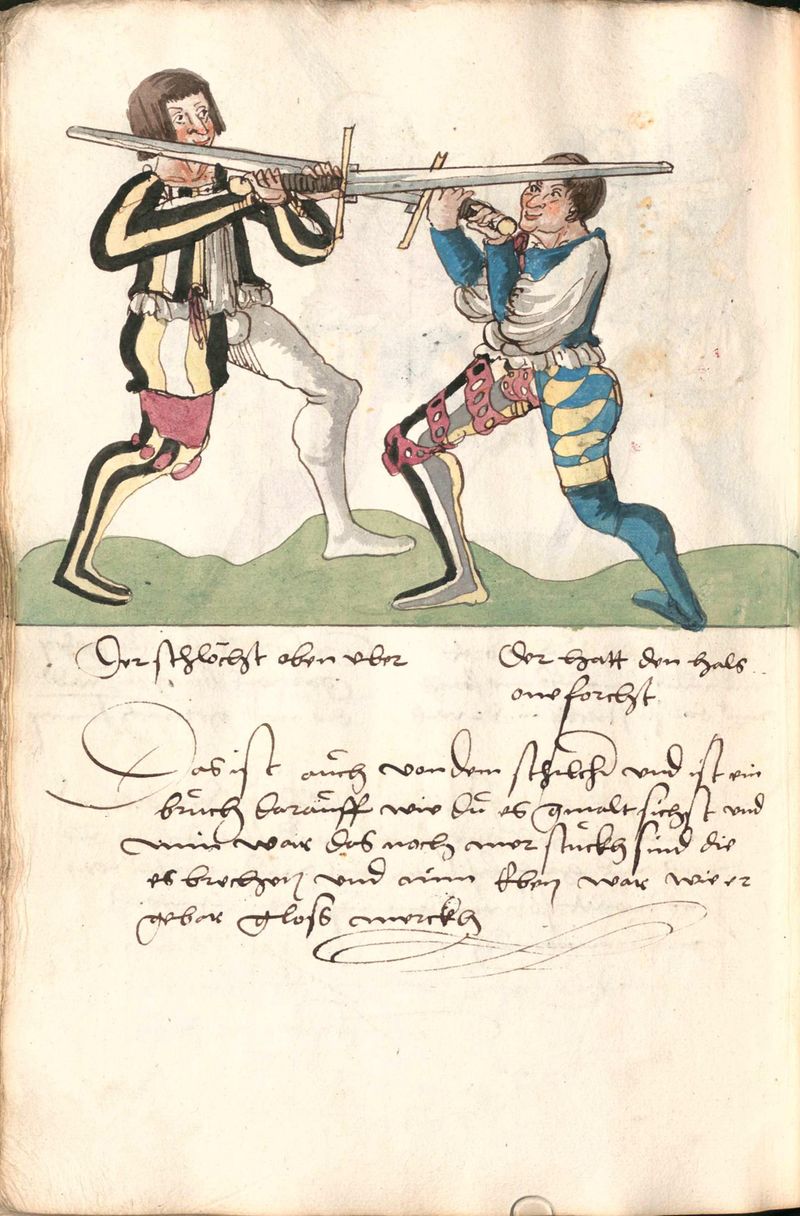 Der schlöchst oben vber
Der hatt den hals
one forchst
Das ist auch von dem schilchē vnd ist ein
bruch darauff wie du es gmalt sichst vnd
nim war das noch mer stuckh sind die
es brechen vnd nim Eben war wie er
gebar gloss merckh